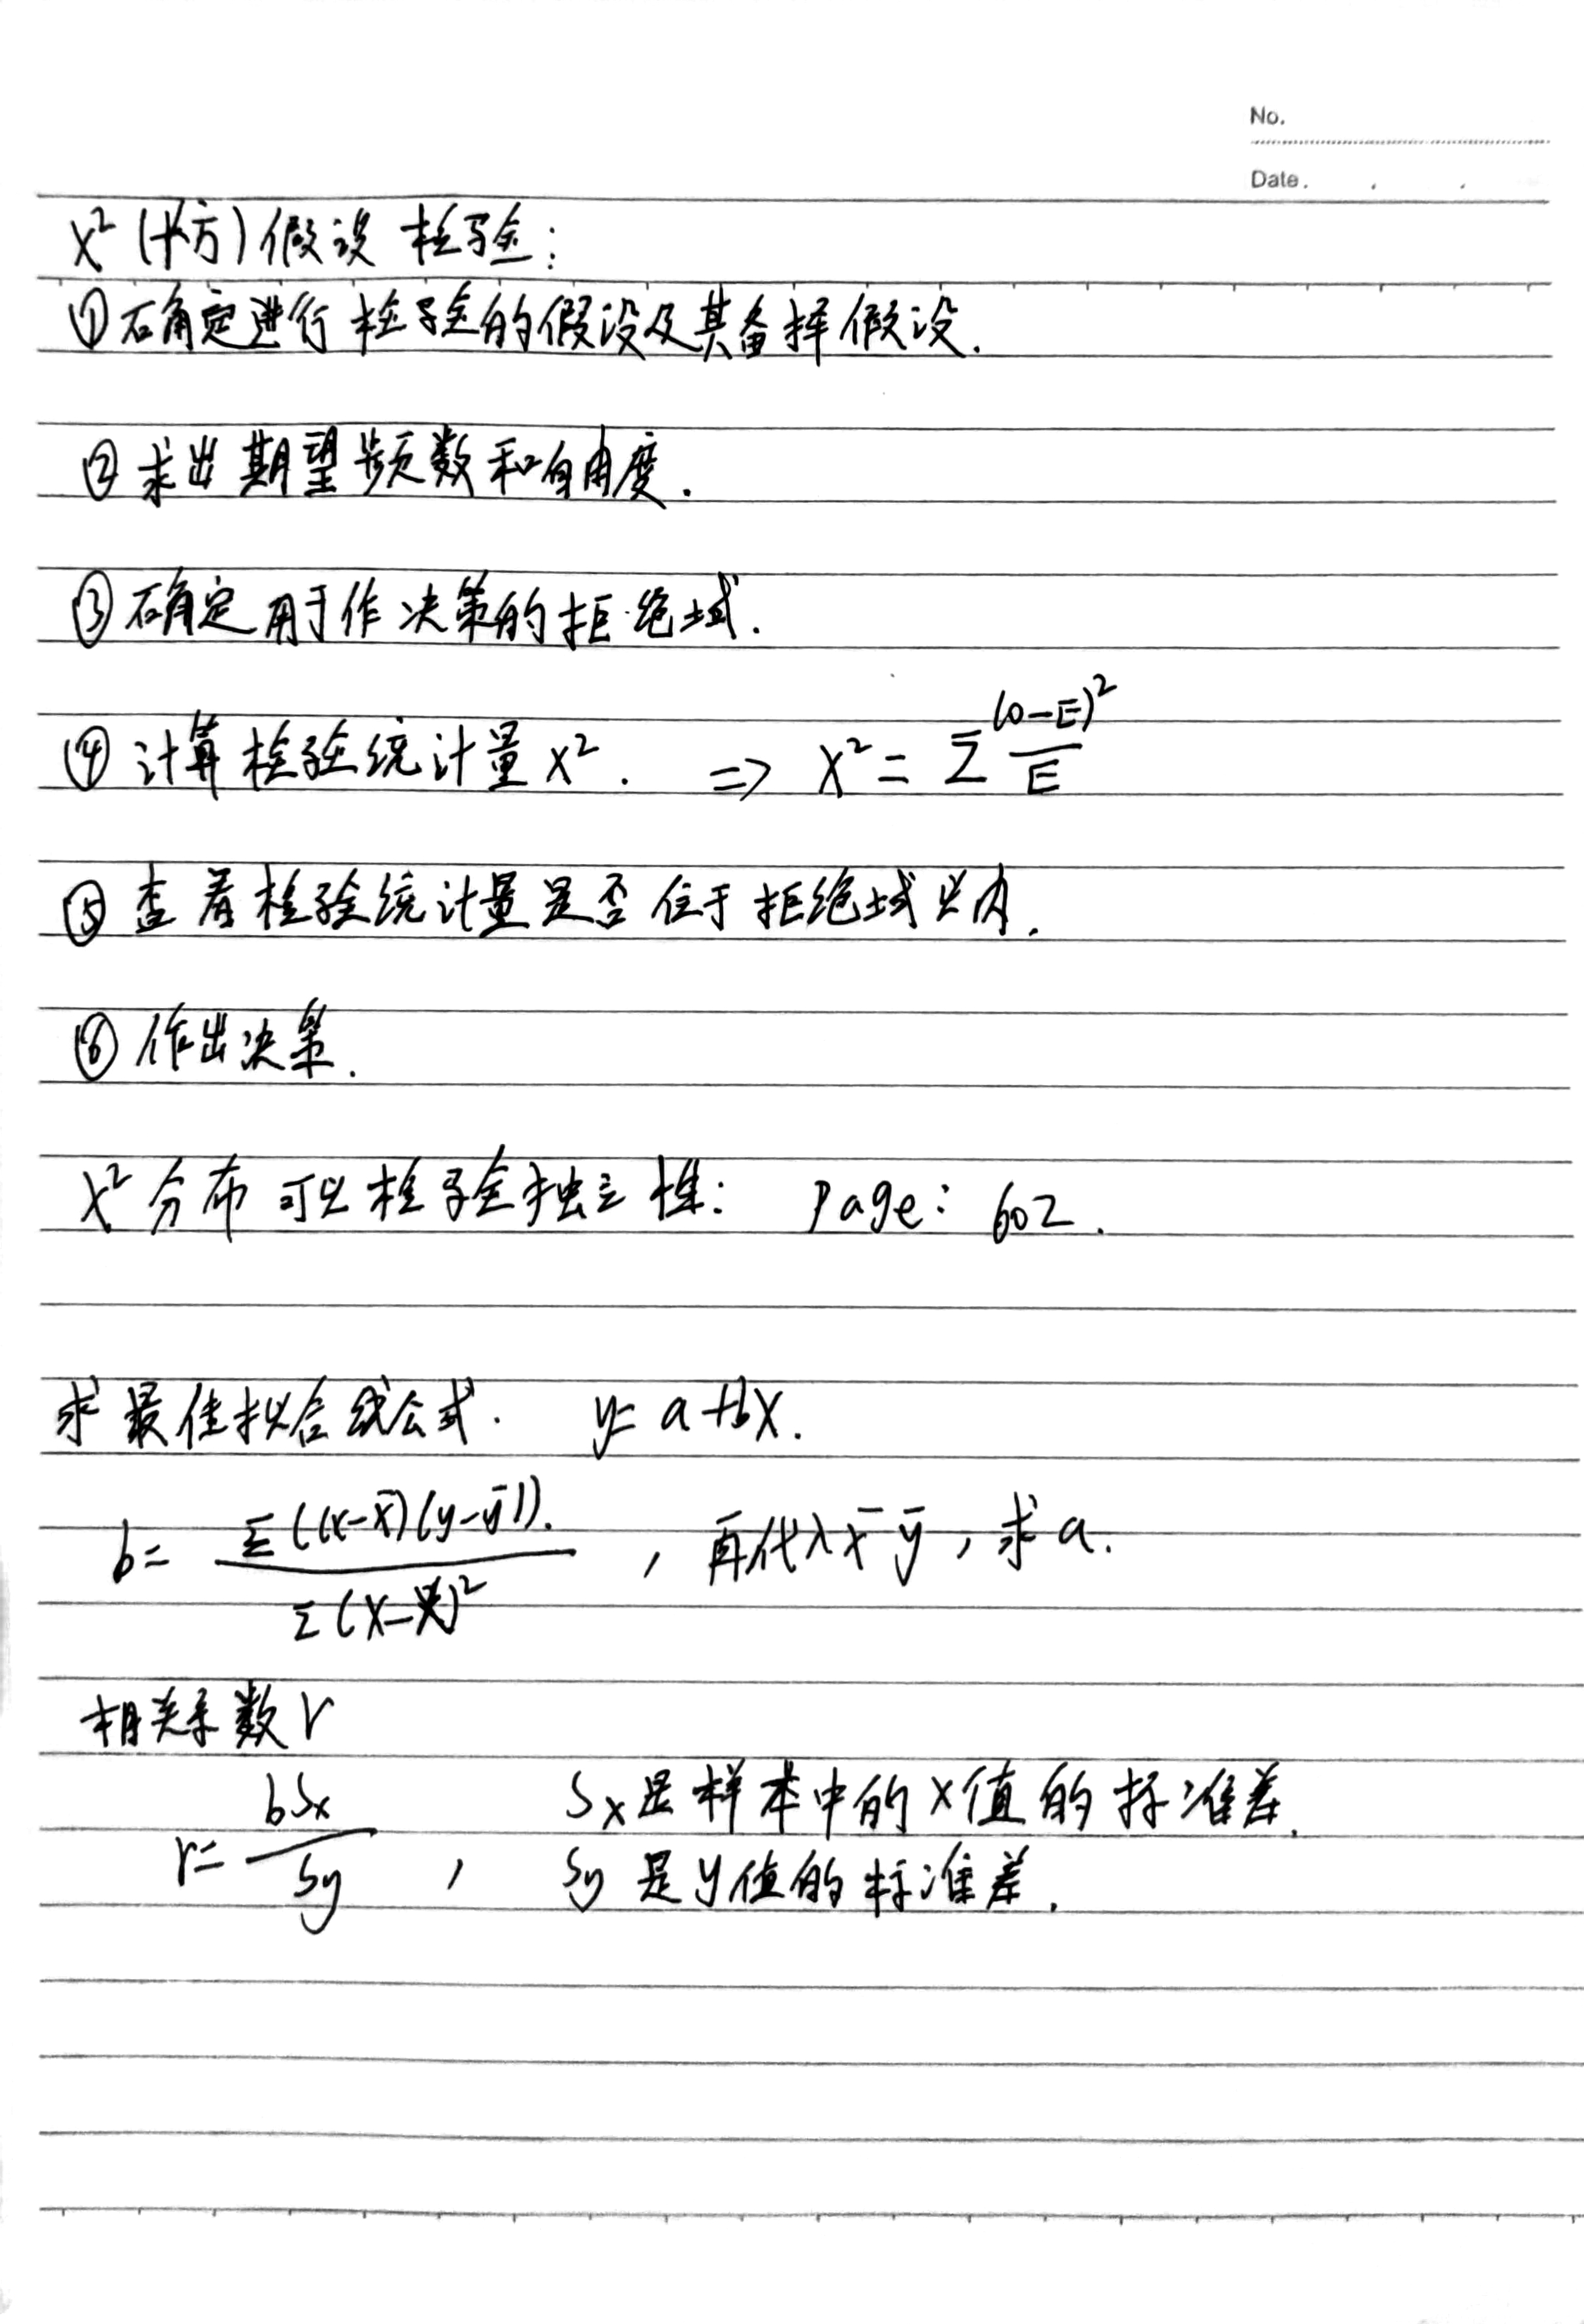 No.
Date.
X² (卡方) 假设检验:
① 确定进行检验的假设及其备择假设.
② 求出期望频数和自由度.
③ 确定用于作决策的拒绝域.
④ 计算检验统计量 X². => X² = Σ (O-E)²/E
⑤ 查看检验统计量是否位于拒绝域以内.
⑥ 作出决策.
X² 分布可以检验独立性: Page: 602.
求最佳拟合线公式. y = a+bx.
b = Σ((x-x̄)(y-ȳ))./Σ(x-x̄)² , 再代入 x̄ ȳ, 求a.
相关系数 r
r = bSx/Sy , Sx是样本中的x值的标准差.
Sy 是y值的标准差.